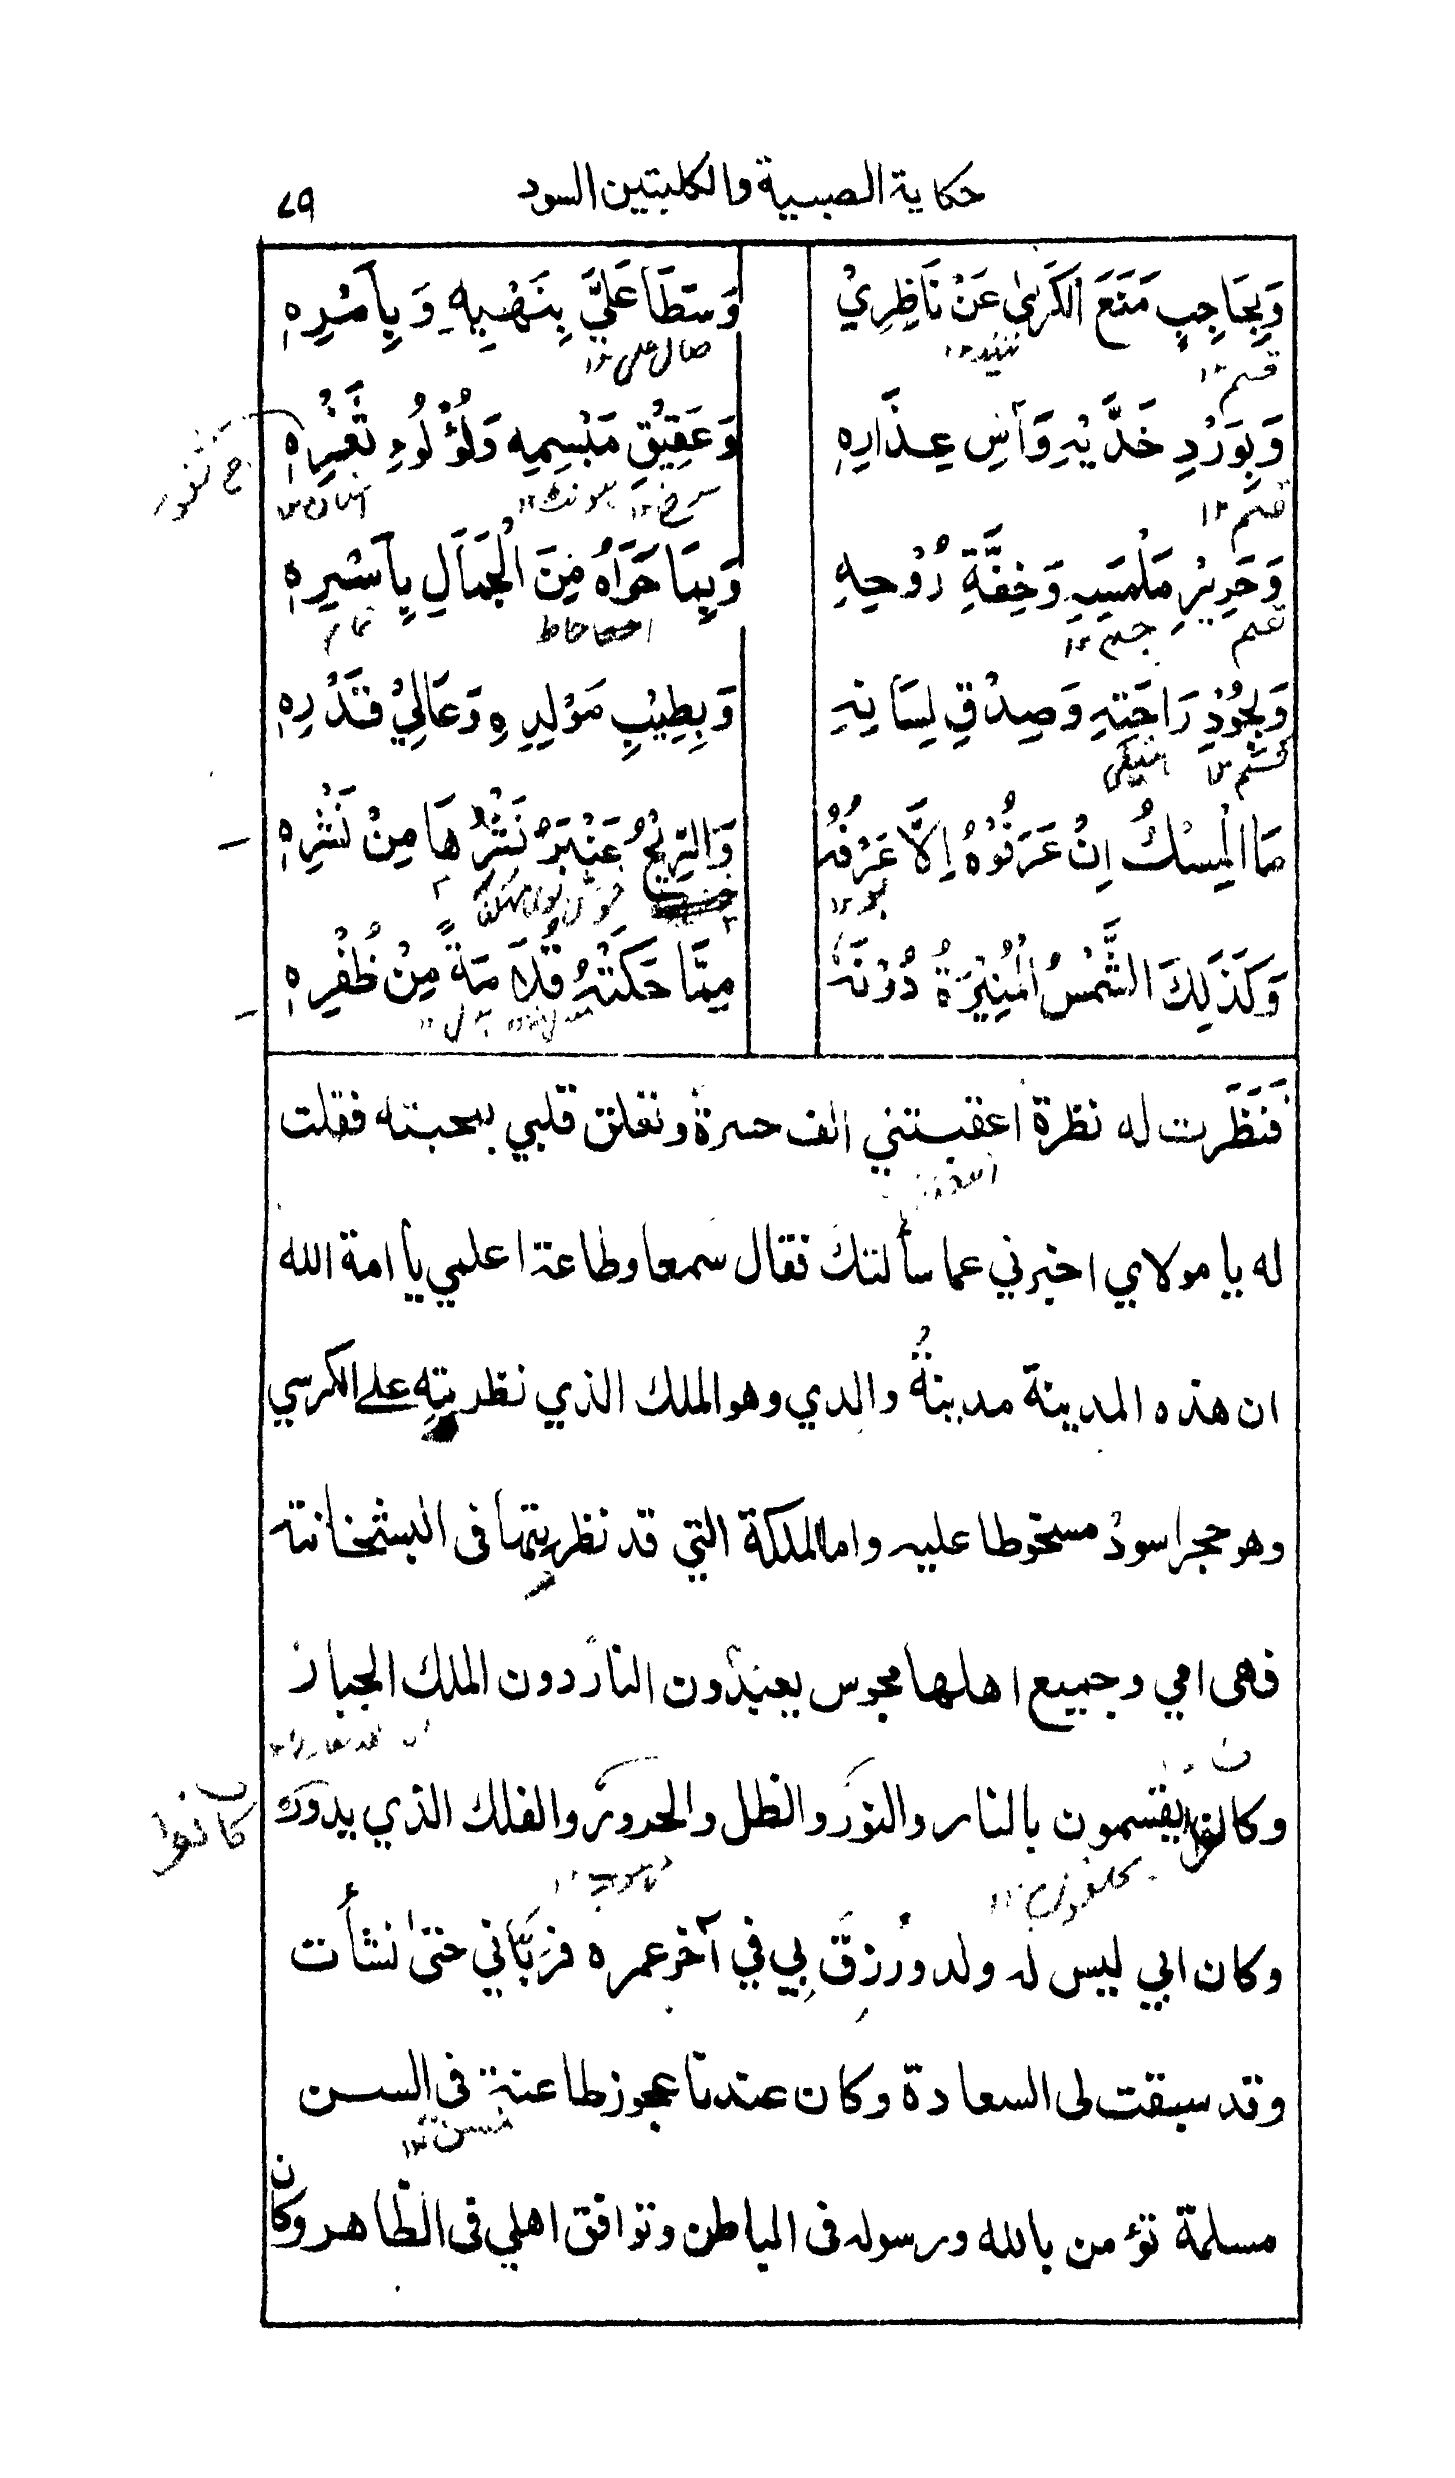 حكاية الصبية والكلبتين السود ٧٩
وَبِحَاجِبٍ مَنَعَ الْكَرَىٰ عَنْ نَاظِرِيْ وَسَطَا عَلَيَّ بِنَهْيِهِ وَبِأَمْرِهٖ
قسم ١٢ نيند ١٢ صال على ١٢
وَبِوَرْدِ خَدَّيْهِ وَآسِ عِذَارِهٖ وَعَقِيْقِ مَبْسِمِهٖ وَلُؤْلُوءِ ثَغْرِهٖ
قسم ١٢ سرخ ١٢ هونٹ ١٢
ج ثغور
وَحَرِيْرِ مَلْمَسِهٖ وَخِفَّةِ رُوْحِهٖ وَبِمَا حَوَاهُ مِنَ الْجَمَالِ بِأَسْرِهٖ
قسم جسم ١٢ احاط تمام
وَبِجُوْدِ رَاحَتِهٖ وَصِدْقِ لِسَانِهٖ وَبِطِيْبِ مَوْلِدِهٖ وَعَالِيْ قَدْرِهٖ
قسم
مَا الْمِسْكُ اِنْ عَرَفُوْهُ اِلَّا عَرْفُهٗ وَالرِّيْحُ عَنْبَرُ نَشْرُهَا مِنْ نَشْرِهٖ
بو ١٢
وَكَذٰلِكَ الشَّمْسُ الْمُنِيْرَةُ دُوْنَهٗ مِمَّا حَكَتْهُ قُلَامَةً مِنْ ظُفْرِهٖ
فَنَظَرت له نظرة اعقبتني الف حسرة وتعلق قلبي بمحبته فقلت
له يا مولاي اخبرني عما سألتك فقال سمعا وطاعة اعلمي يا امة الله
ان هذه المدينة مدينةُ والدي وهو الملك الذي نظريتِه على الكرسي
وهو حجر اسود مسخوطا عليه واما الملكة التي قد نظريتها فى البشخانة
فهى امي وجميع اهلها مجوس يعبدون النار دون الملك الجبار
وكانوا يقسمون بالنار والنور والظل والحرور والفلك الذي يدور
كانوا
وكان ابي ليس له ولد ورُزِقَ بِي في آخر عمره فربّاني حتى نشأت
وقد سبقت لى السعادة وكان عندنا عجوز طاعنة فى السن
مسن ١٢
مسلمة تؤمن بالله ورسوله فى الباطن وتوافق اهلي فى الظاهر وكان